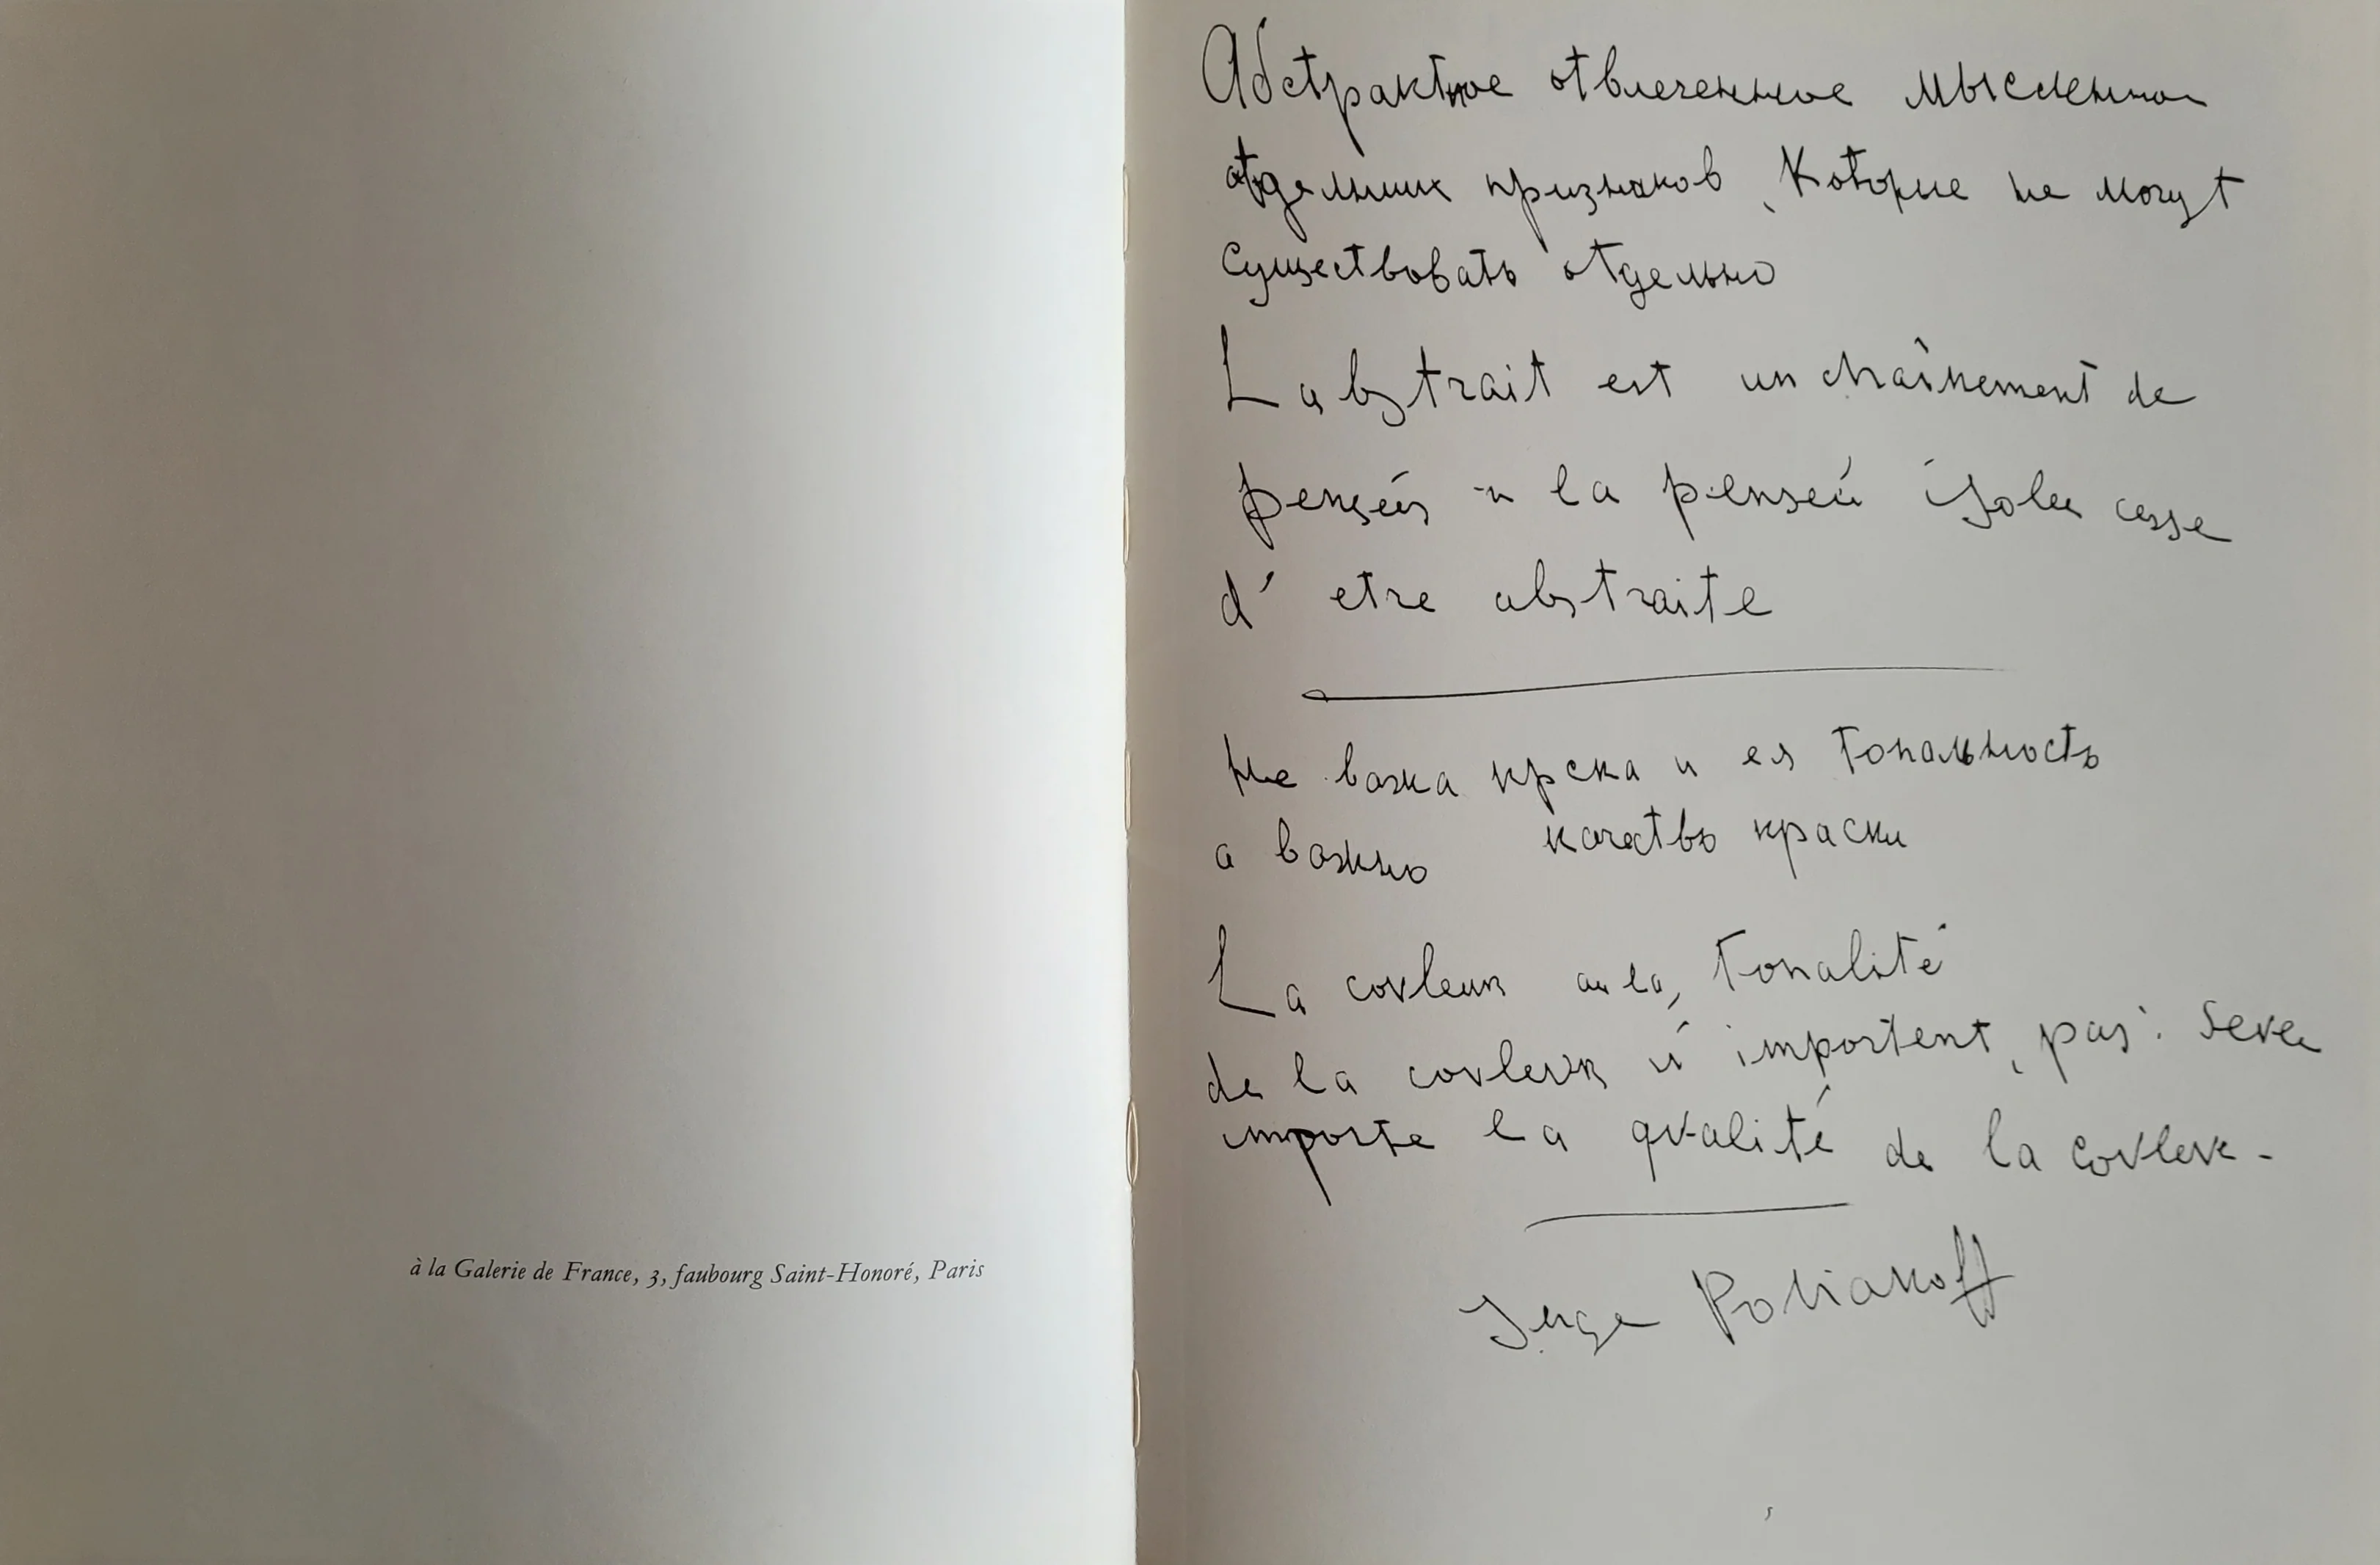 à la Galerie de France, 3, faubourg Saint-Honoré, Paris
Абстрактное отвлеченное мысленное
отдельних признаков, Которие не могут
Существовать отдельно
L abstrait est un chaînement de
pensées la pensée isolee cesse
d' etre abstraite
Не важа крска и ея тональность
а важно качество краски
La couleur tonalité
de la couleur n' importent pas.
importe la qualité de la couleur.
Serge Poliakoff